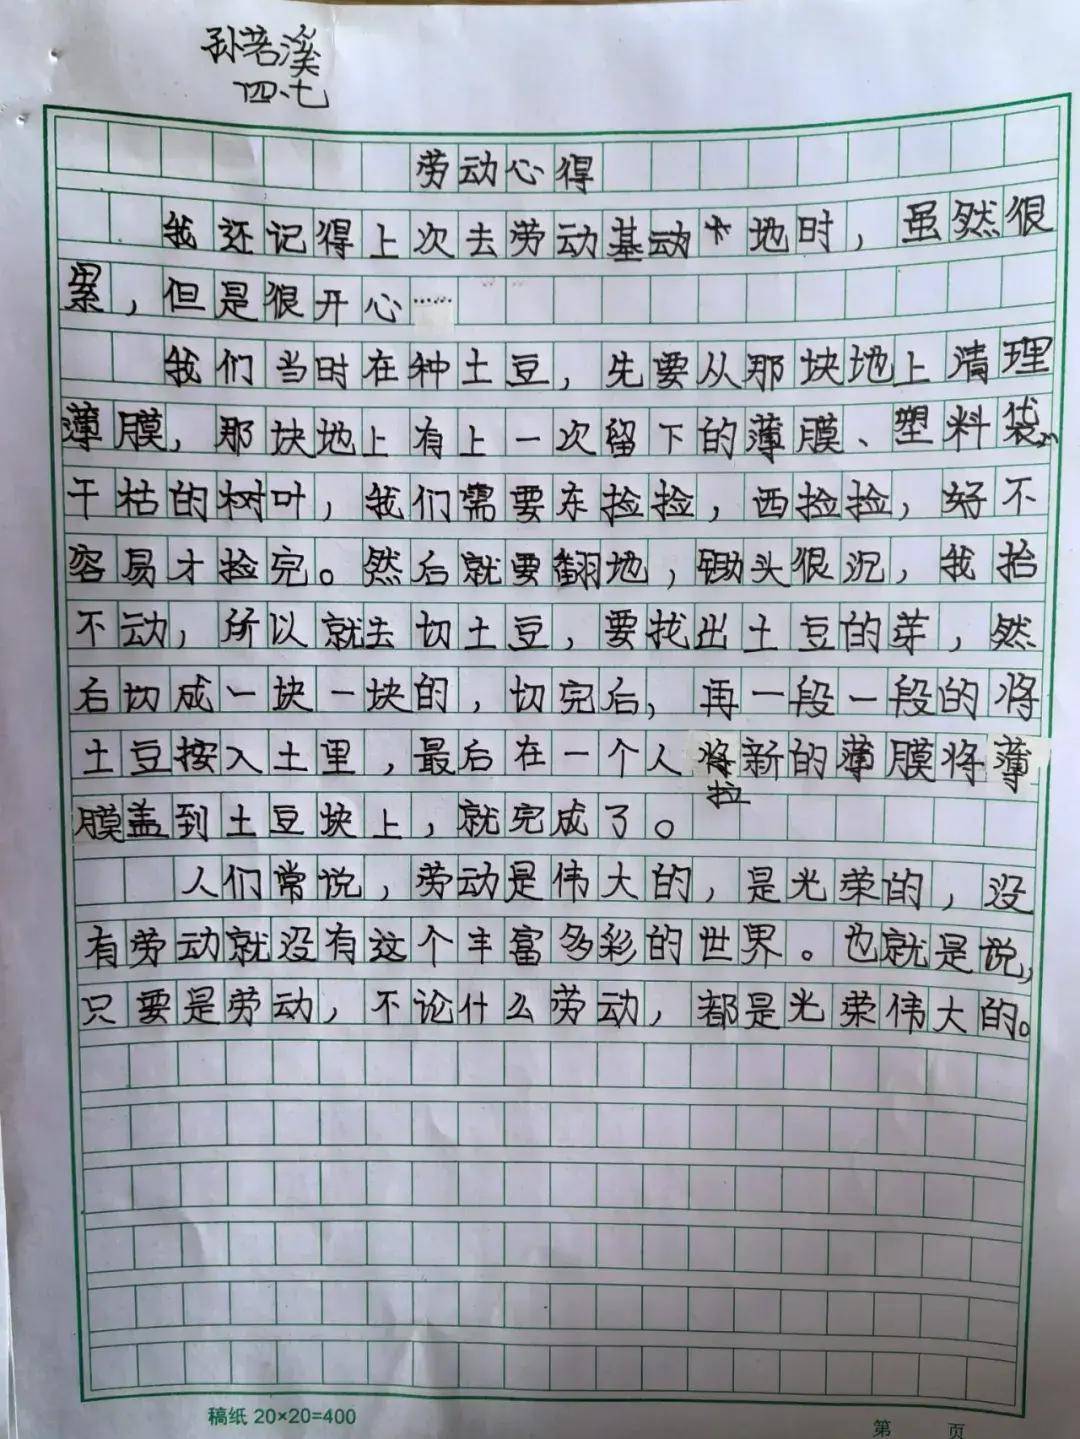 孙若溪
四、七
劳动心得
我还记得上次去劳动基动地时，虽然很
累，但是很开心……
我们当时在种土豆，先要从那块地上清理
薄膜，那块地上有上一次留下的薄膜、塑料袋、
干枯的树叶，我们需要东捡捡，西捡捡，好不
容易才捡完。然后就要翻地，锄头很沉，我抬
不动，所以就去切土豆，要找出土豆的芽，然
后切成一块一块的，切完后，再一段一段的将
土豆按入土里，最后在一个人拉新的薄膜将薄
膜盖到土豆块上，就完成了。
人们常说，劳动是伟大的，是光荣的，没
有劳动就没有这个丰富多彩的世界。也就是说，
只要是劳动，不论什么劳动，都是光荣伟大的。
稿纸 20×20=400
第 页